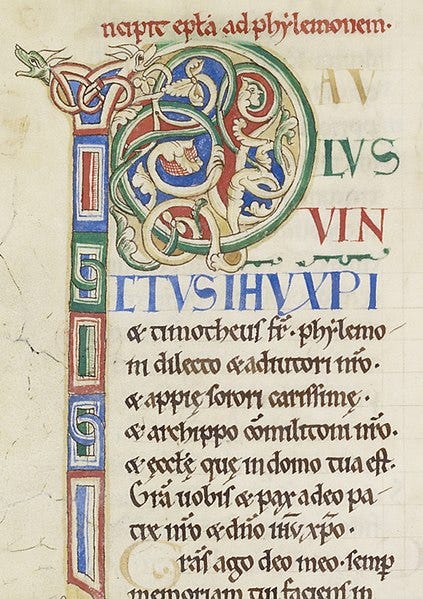 ncipit epłа ad phylemonem.
PAV
LVS
VIN
CTVS IHV XPI
& timotheus fr̄. phylemo-
ni dilecto & adiutori nr̄o.
& appię sorori carissimę.
& archippo cōmilitoni nr̄o.
& ęcclę quę in domo tua est.
Grā uobis & pax a deo pa-
tre nr̄o & dn̄o ihū xp̄o.
Gras̄ ago deo meo. semp̄
memoriam tui faciens in